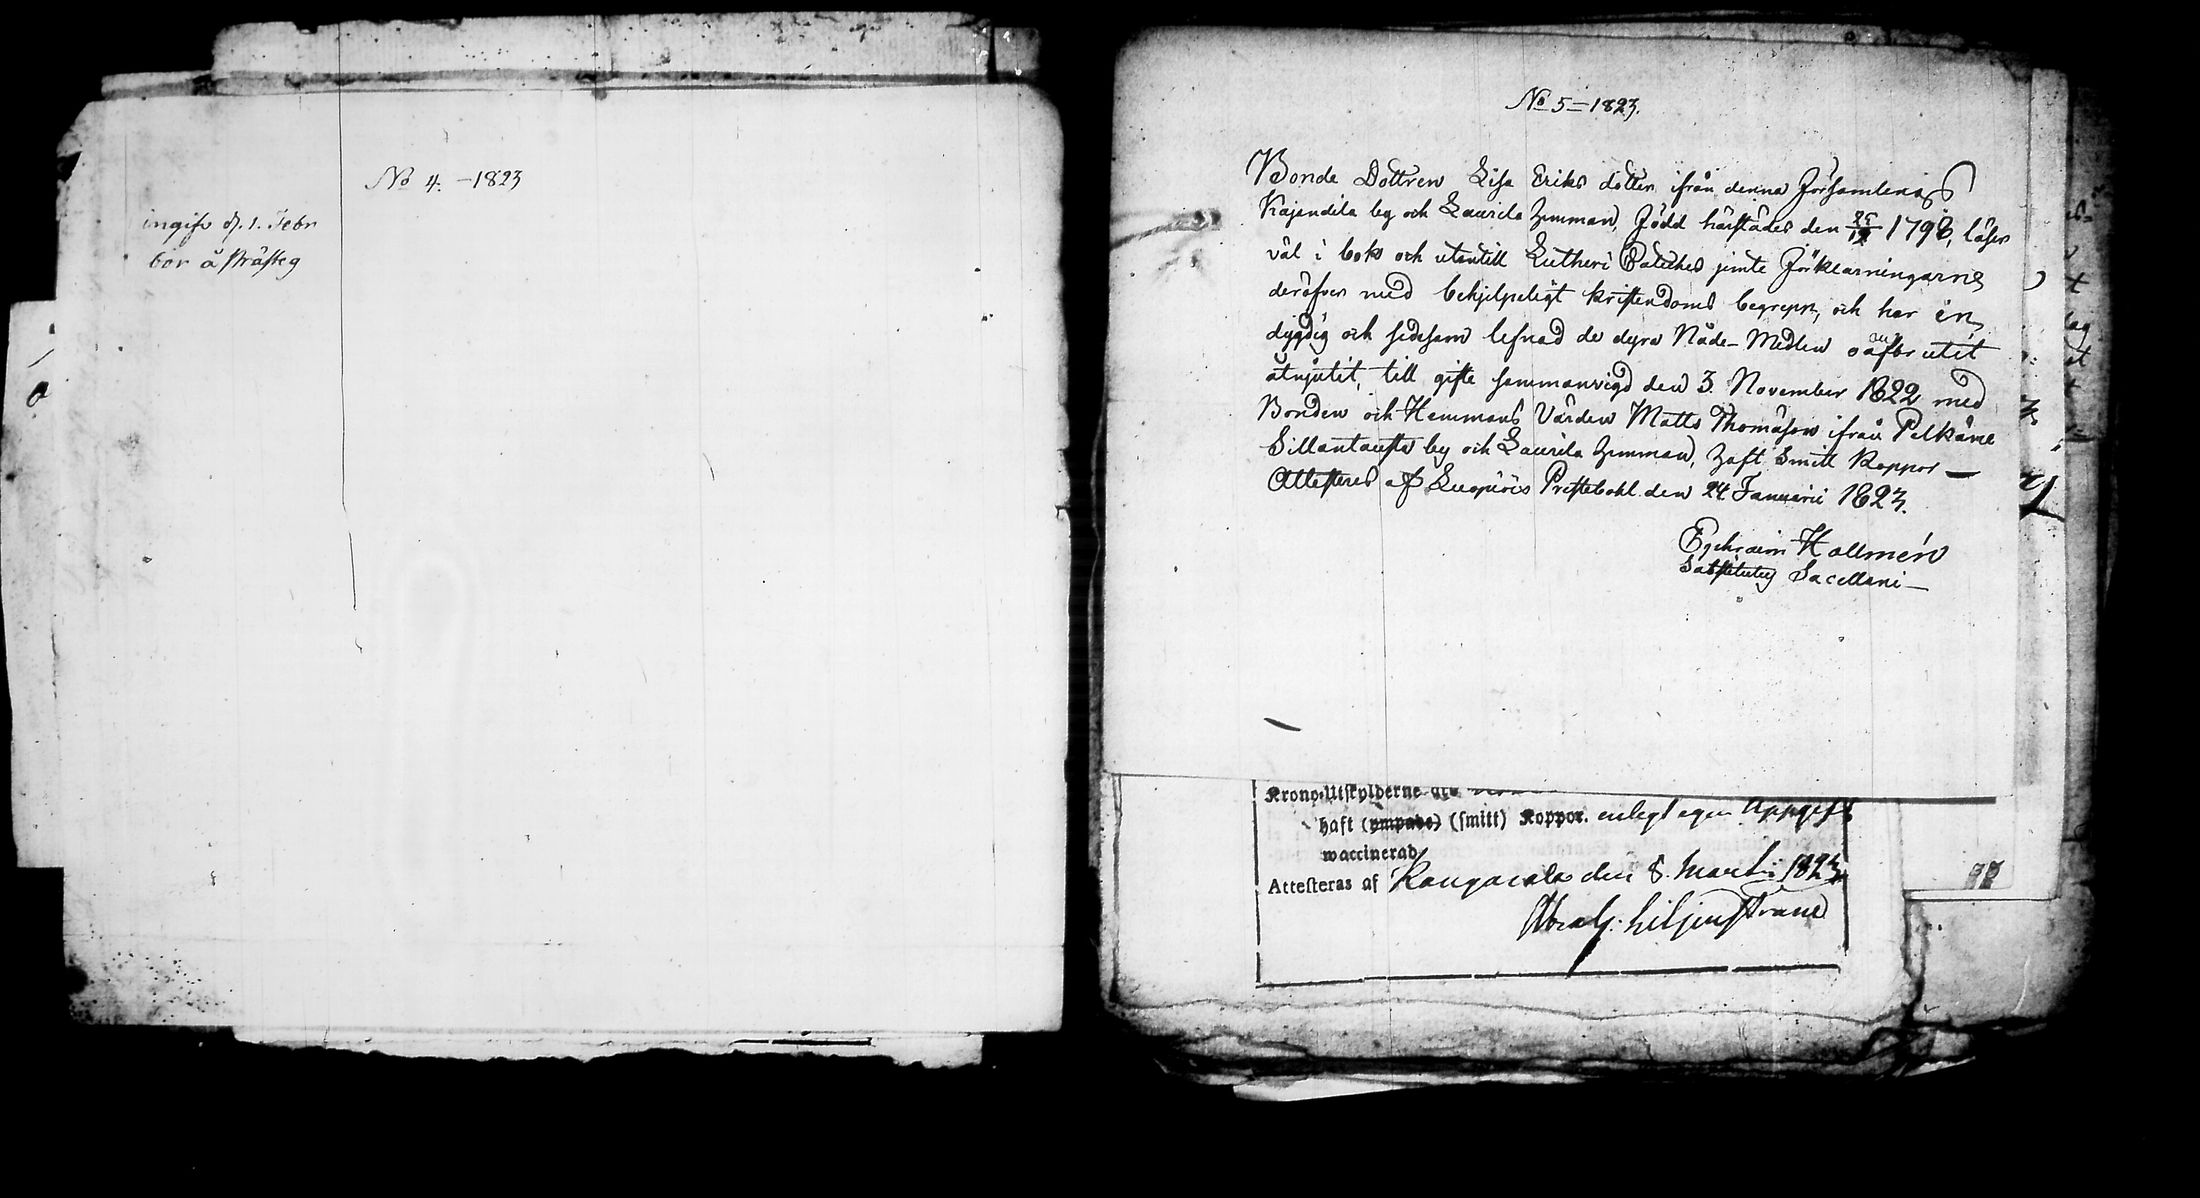 No 4. - 1823
ingifv d. 1. Febr
bor å
No 5 - 1823.
Bonde Dottren Lisa Eriks dotter ifrån denna Församlings
Kajandila by och Laurila Hemman, Född härstädes den 1798, läser
väl i bok och utantill Lutheri Cateches jemte Förklarningarne
deröfver med behjelpeligt kristendoms begrepp, och har en
dygdig och sedesam lefnad de dyra Nåde-Medlen oafbrutit
åtnjutit, till gifte sammanvigd den 3. November 1822 med
Bonden och Hemmans Värden Matts Thomasson ifrån Pelkäne
Sillantausta by och Laurila Hemman, Haft Smitt Koppor —
Attesteras af Luopiois Prestebohl den 24 Januarii 1823.
Ephraim Hallmén
Sacellani
Krono-Utskylderne
haft (ympade) (smitt) Koppor. enligt egen Uppgift
waccinerad
Attesteras af Kangasala den 8. Martii 1823
Abrah: Liljenstrand